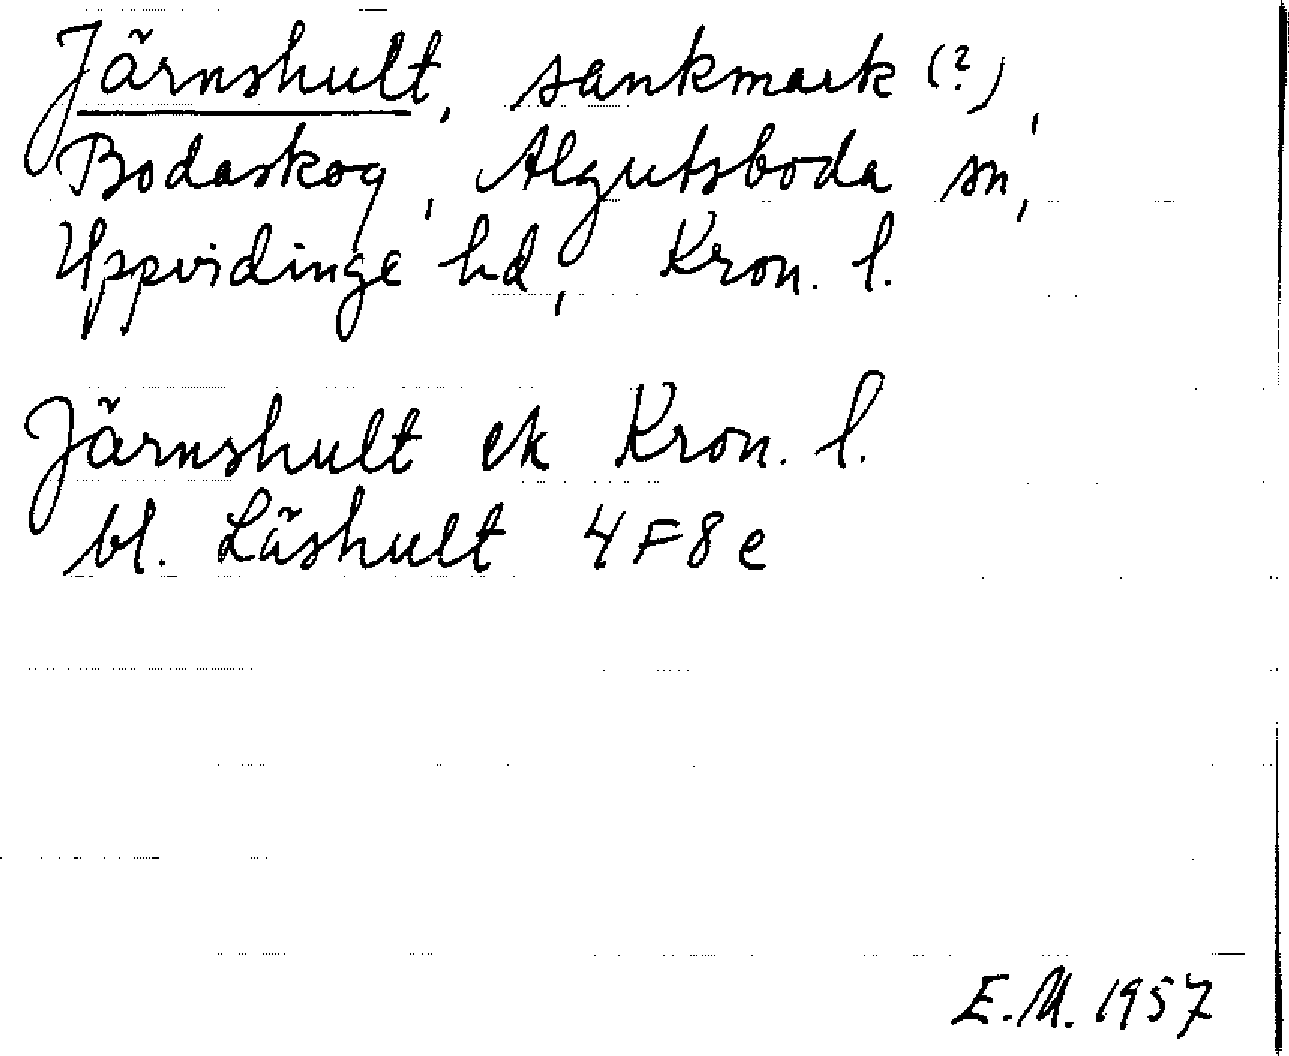 Järnshult, sankmark (?),
Bodaskog, Algutsboda sn,
Uppvidinge hd, Kron. l.
Järnshult ek Kron. l.
bl. Läshult 4F8e
E.M. 1957